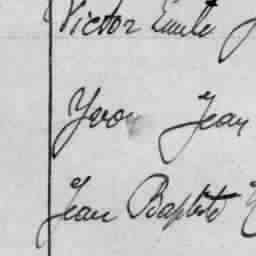 Victor Emile
Yvon Jean
Jean Baptiste